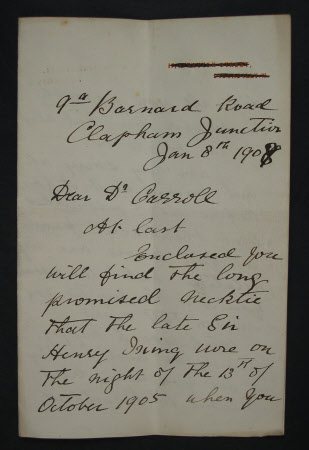 9a Barnard Road
Clapham Junction
Jan 8th 1908
Dear Dr Carroll
At last
Enclosed you
will find the long
promised necktie
that the late Sir
Henry Irving wore on
the night of the 13th of
October 1905 when you